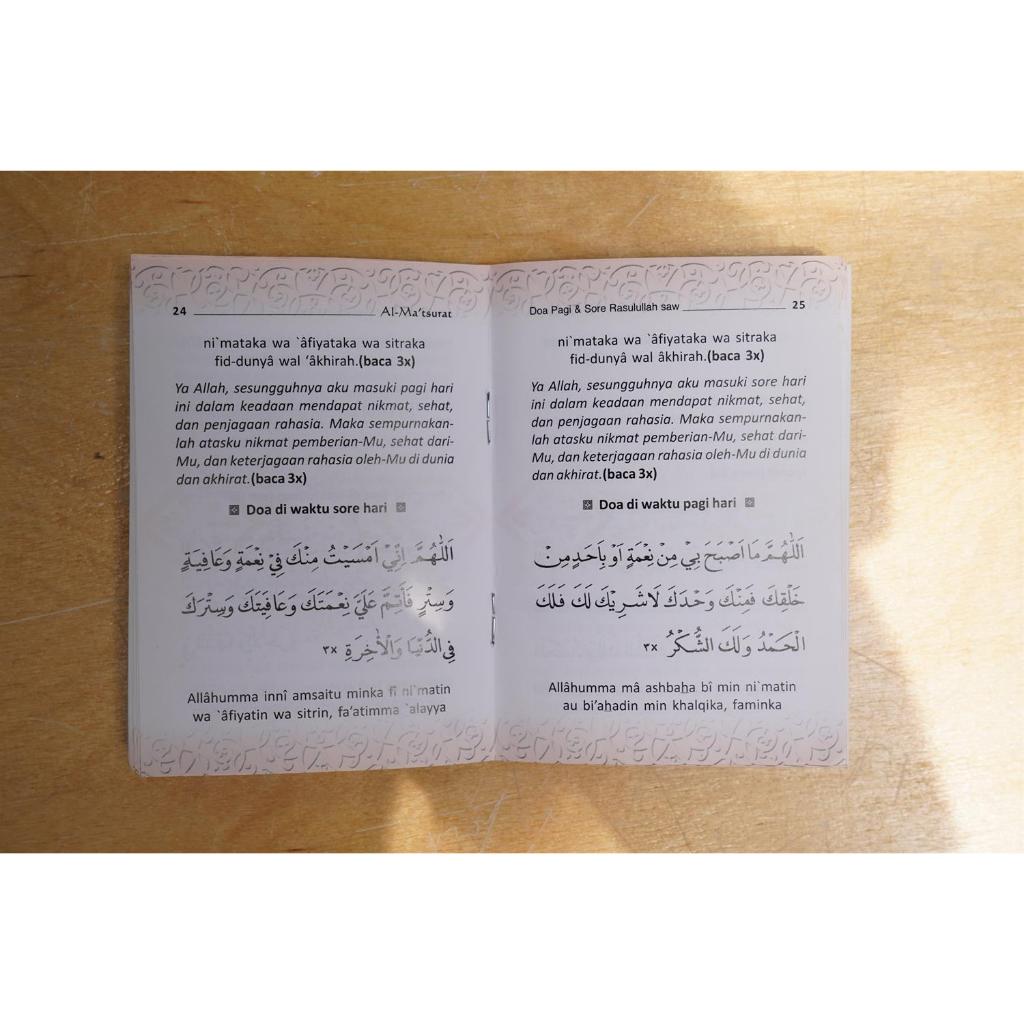 24 Al-Ma'tsurat
ni`mataka wa `âfiyataka wa sitraka
fid-dunyâ wal ‘âkhirah.(baca 3x)
Ya Allah, sesungguhnya aku masuki pagi hari
ini dalam keadaan mendapat nikmat, sehat,
dan penjagaan rahasia. Maka sempurnakan-
lah atasku nikmat pemberian-Mu, sehat dari-
Mu, dan keterjagaan rahasia oleh-Mu di dunia
dan akhirat.(baca 3x)
Doa di waktu sore hari
اَللّٰهُمَّ اِنِّيْ اَمْسَيْتُ مِنْكَ فِيْ نِعْمَةٍ وَعَافِيَةٍ
وَسِتْرٍ فَأَتِمَّ عَلَيَّ نِعْمَتَكَ وَعَافِيَتَكَ وَسِتْرَكَ
فِي الدُّنْيَا وَالْأٰخِرَةِ ٣x
Allâhumma innî amsaitu minka fî ni`matin
wa `âfiyatin wa sitrin, fa’atimma `alayya
Doa Pagi & Sore Rasulullah saw 25
ni`mataka wa `âfiyataka wa sitraka
fid-dunyâ wal ‘âkhirah.(baca 3x)
Ya Allah, sesungguhnya aku masuki sore hari
ini dalam keadaan mendapat nikmat, sehat,
dan penjagaan rahasia. Maka sempurnakan-
lah atasku nikmat pemberian-Mu, sehat dari-
Mu, dan keterjagaan rahasia oleh-Mu di dunia
dan akhirat.(baca 3x)
Doa di waktu pagi hari
اَللّٰهُمَّ مَا اَصْبَحَ بِيْ مِنْ نِعْمَةٍ اَوْ بِاَحَدٍ مِنْ
خَلْقِكَ فَمِنْكَ وَحْدَكَ لَا شَرِيْكَ لَكَ فَلَكَ
الْحَمْدُ وَلَكَ الشُّكْرُ ٣x
Allâhumma mâ ashbaha bî min ni`matin
au bi’ahadin min khalqika, faminka